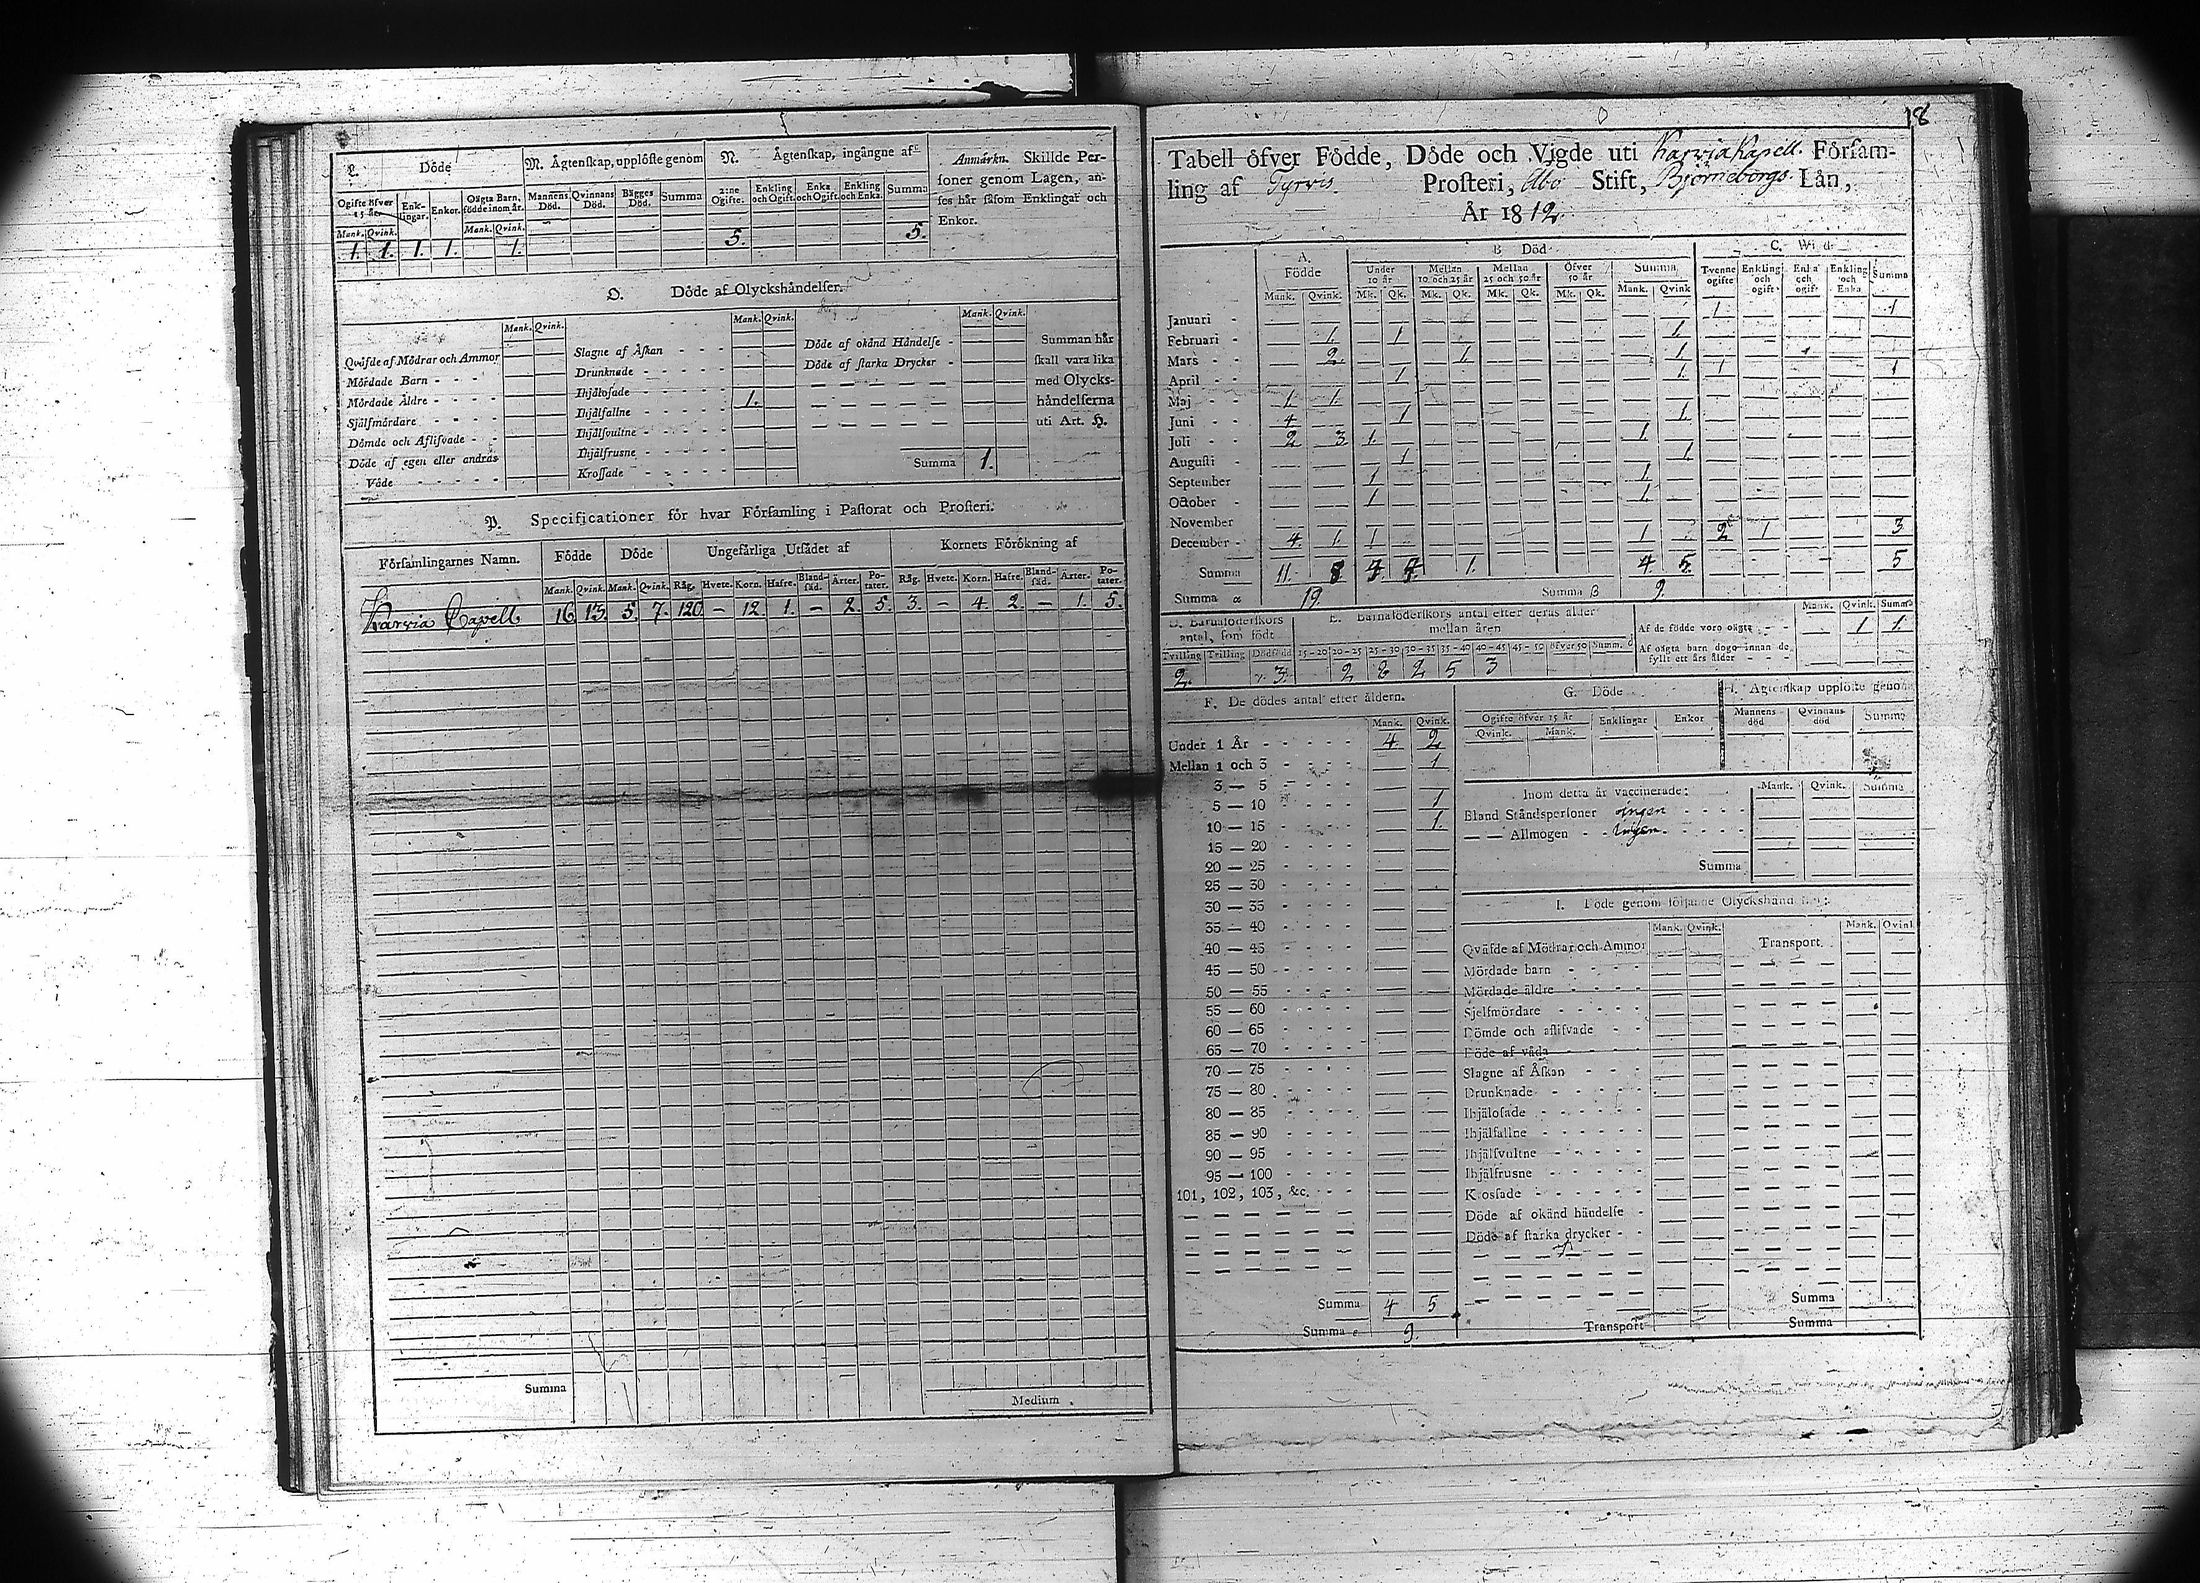 L. Döde
M. Ägtenſkap, upplöſte genom
N. Ägtenſkap, ingångne af
Anmärkn. Skillde Per-
ſoner genom Lagen, an-
ſes här ſåſom Enklingar och
Enkor.
Ogifte öfver 15 år.
Enk-lingar.
Enkor.
Oägta Barn, födde inom år.
Mannens Död.
Qvinnans Död.
Bägges Död.
Summa
2:ne Ogifte.
Enkling och Ogift.
Enka och Ogift.
Enkling och Enka.
Summa
Mank. Qvink. Mank. Qvink.
1. 1. 1. 1. 1. 5. 5.
O. Döde af Olyckshändelſer.
Mank. Qvink. Mank. Qvink. Mank. Qvink.
Qväfde af Mödrar och Ammor
Mördade Barn
Mördade Äldre
Självmördare
Dömde och Aflifvade
Döde af egen eller andras
Våde
Slagne af Åſkan
Drunknade
Ihjälofade 1.
Ihjälfallne
Ihjälſvultne
Ihjälfrusne
Kroſſade
Döde af okänd Händelſe
Döde af ſtarka Drycker
Summa 1.
Summan här
ſkall vara lika
med Olycks-
händelſerna
uti Art. H.
P. Specificationer för hvar Förſamling i Paſtorat och Proſteri.
Förſamlingarnes Namn. Födde Döde Ungefärliga Utſädet af Kornets Förökning af
Mank. Qvink. Mank. Qvink. Råg. Hvete. Korn. Hafre. Bland-ſäd. Ärter. Po-tater. Råg. Hvete. Korn. Hafre. Bland-ſäd. Ärter. Po-tater.
Karvia Capell 16. 13. 5. 7. 120 – 12. 1. – 2. 5. 3. – 4. 2. – 1. 5.
Summa
Medium
18
Tabell öfver Födde, Döde och Vigde uti Karvia Kapell. Förſam-
ling af Tyrvis Proſteri, Åbo Stift, Björneborgs Län,
År 1812.
A. Födde
B Död
C. Wigd
Under 10 år
Mellan 10 och 25 år
Mellan 25 och 50 år
Öfver 50 år
Summa
Tvenne ogifte
Enkling och ogift
Enka och ogift
Enkling och Enka
Summa
Mank. Qvink. Mk. Qk. Mk. Qk. Mk. Qk. Mk. Qk. Mank. Qvink
Januari 1 1
Februari 1. 1 1.
Mars 2. 1. 1
April 1 1. 1 1
Maj 1 1.
Juni 4 1 1
Juli 2 3 1. 1.
Auguſti 1 1
September 1 1.
October 1 1.
November
December 4. 1. 1 1 2 1 3
Summa 11. 8 4 4. 1. 4 5. 5
Summa α 19. Summa β 9.
D. Barnaföderſkors
antal, ſom födt
Tvilling Trilling Dödfödd
2. 3.
E. Barnaföderſkors antal efter deras ålder
mellan åren
15–20 20–25 25–30 30–35 35–40 40–45 45–50 öfver 50 Summ.
2 2 2 5 3
Mank. Qvink. Summa
Af de födde voro oägta 1 1.
Af oägta barn dogo innan de
fyllt ett års ålder
F. De dödes antal efter åldern.
Mank. Qvink.
Under 1 År 4. 2
Mellan 1 och 3 1
3 — 5
5 — 10 1
10 — 15 1.
15 — 20
20 — 25
25 — 30
30 — 35
35 — 40
40 — 45
45 — 50
50 — 55
55 — 60
60 — 65
65 — 70
70 — 75
75 — 80
80 — 85
85 — 90
90 — 95
95 — 100
101, 102, 103, &c.
Summa 4 5
Summa 9.
G. Döde
Ogifte öfver 15 år
Qvink. Mank.
Enklingar
Enkor
H. Ägtenſkap upplöſte genom
Mannens död
Qvinnans död
Summa
Inom detta år vaccinerade: Mank. Qvink. Summa
Bland Ståndsperſoner ingen
— — Allmogen ingen
Summa
I. Döde genom följande Olyckshändelſer:
Mank. Qvink. Mank. Qvink
Transport.
Qväfde af Mödrar och Ammor
Mördade barn
Mördade äldre
Sjelfmördare
Dömde och aflifvade
Döde af våda
Slagne af Åſkan
Drunknade
Ihjälofade
Ihjälfallne
Ihjälſvultne
Ihjälfrusne
Kroſſade
Döde af okänd händelſe
Döde af ſtarka drycker
Summa
Transport
Summa